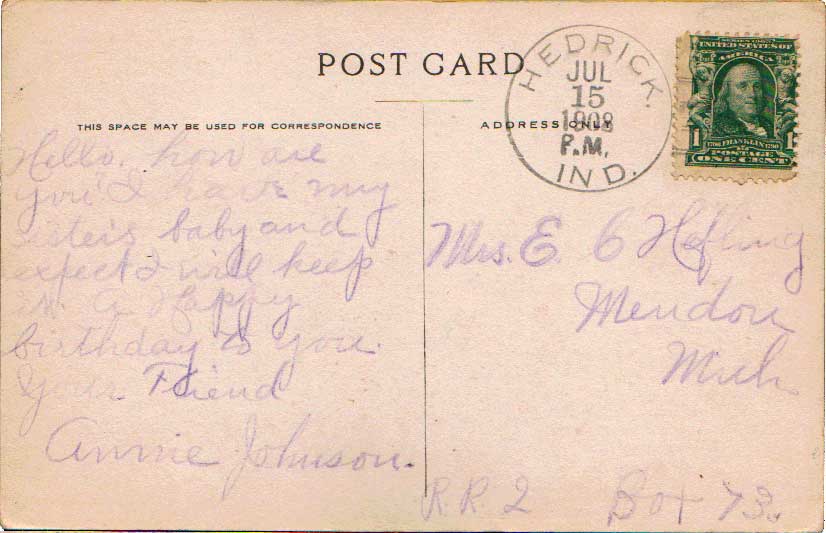 POST CARD
THIS SPACE MAY BE USED FOR CORRESPONDENCE
ADDRESS ONLY
HEDRICK.
JUL
15
1908
P.M.
IND.
SERIES 1902
UNITED STATES OF
AMERICA
1
1706 FRANKLIN 1790
POSTAGE
ONE CENT
Hello, how are
you I have my
sisters baby and
expect I will keep
it. A Happy
birthday to you.
Your Friend
Annie Johnson.
Mrs. E. C Hefling
Mendon
Mich
R.R. 2 Box 73.